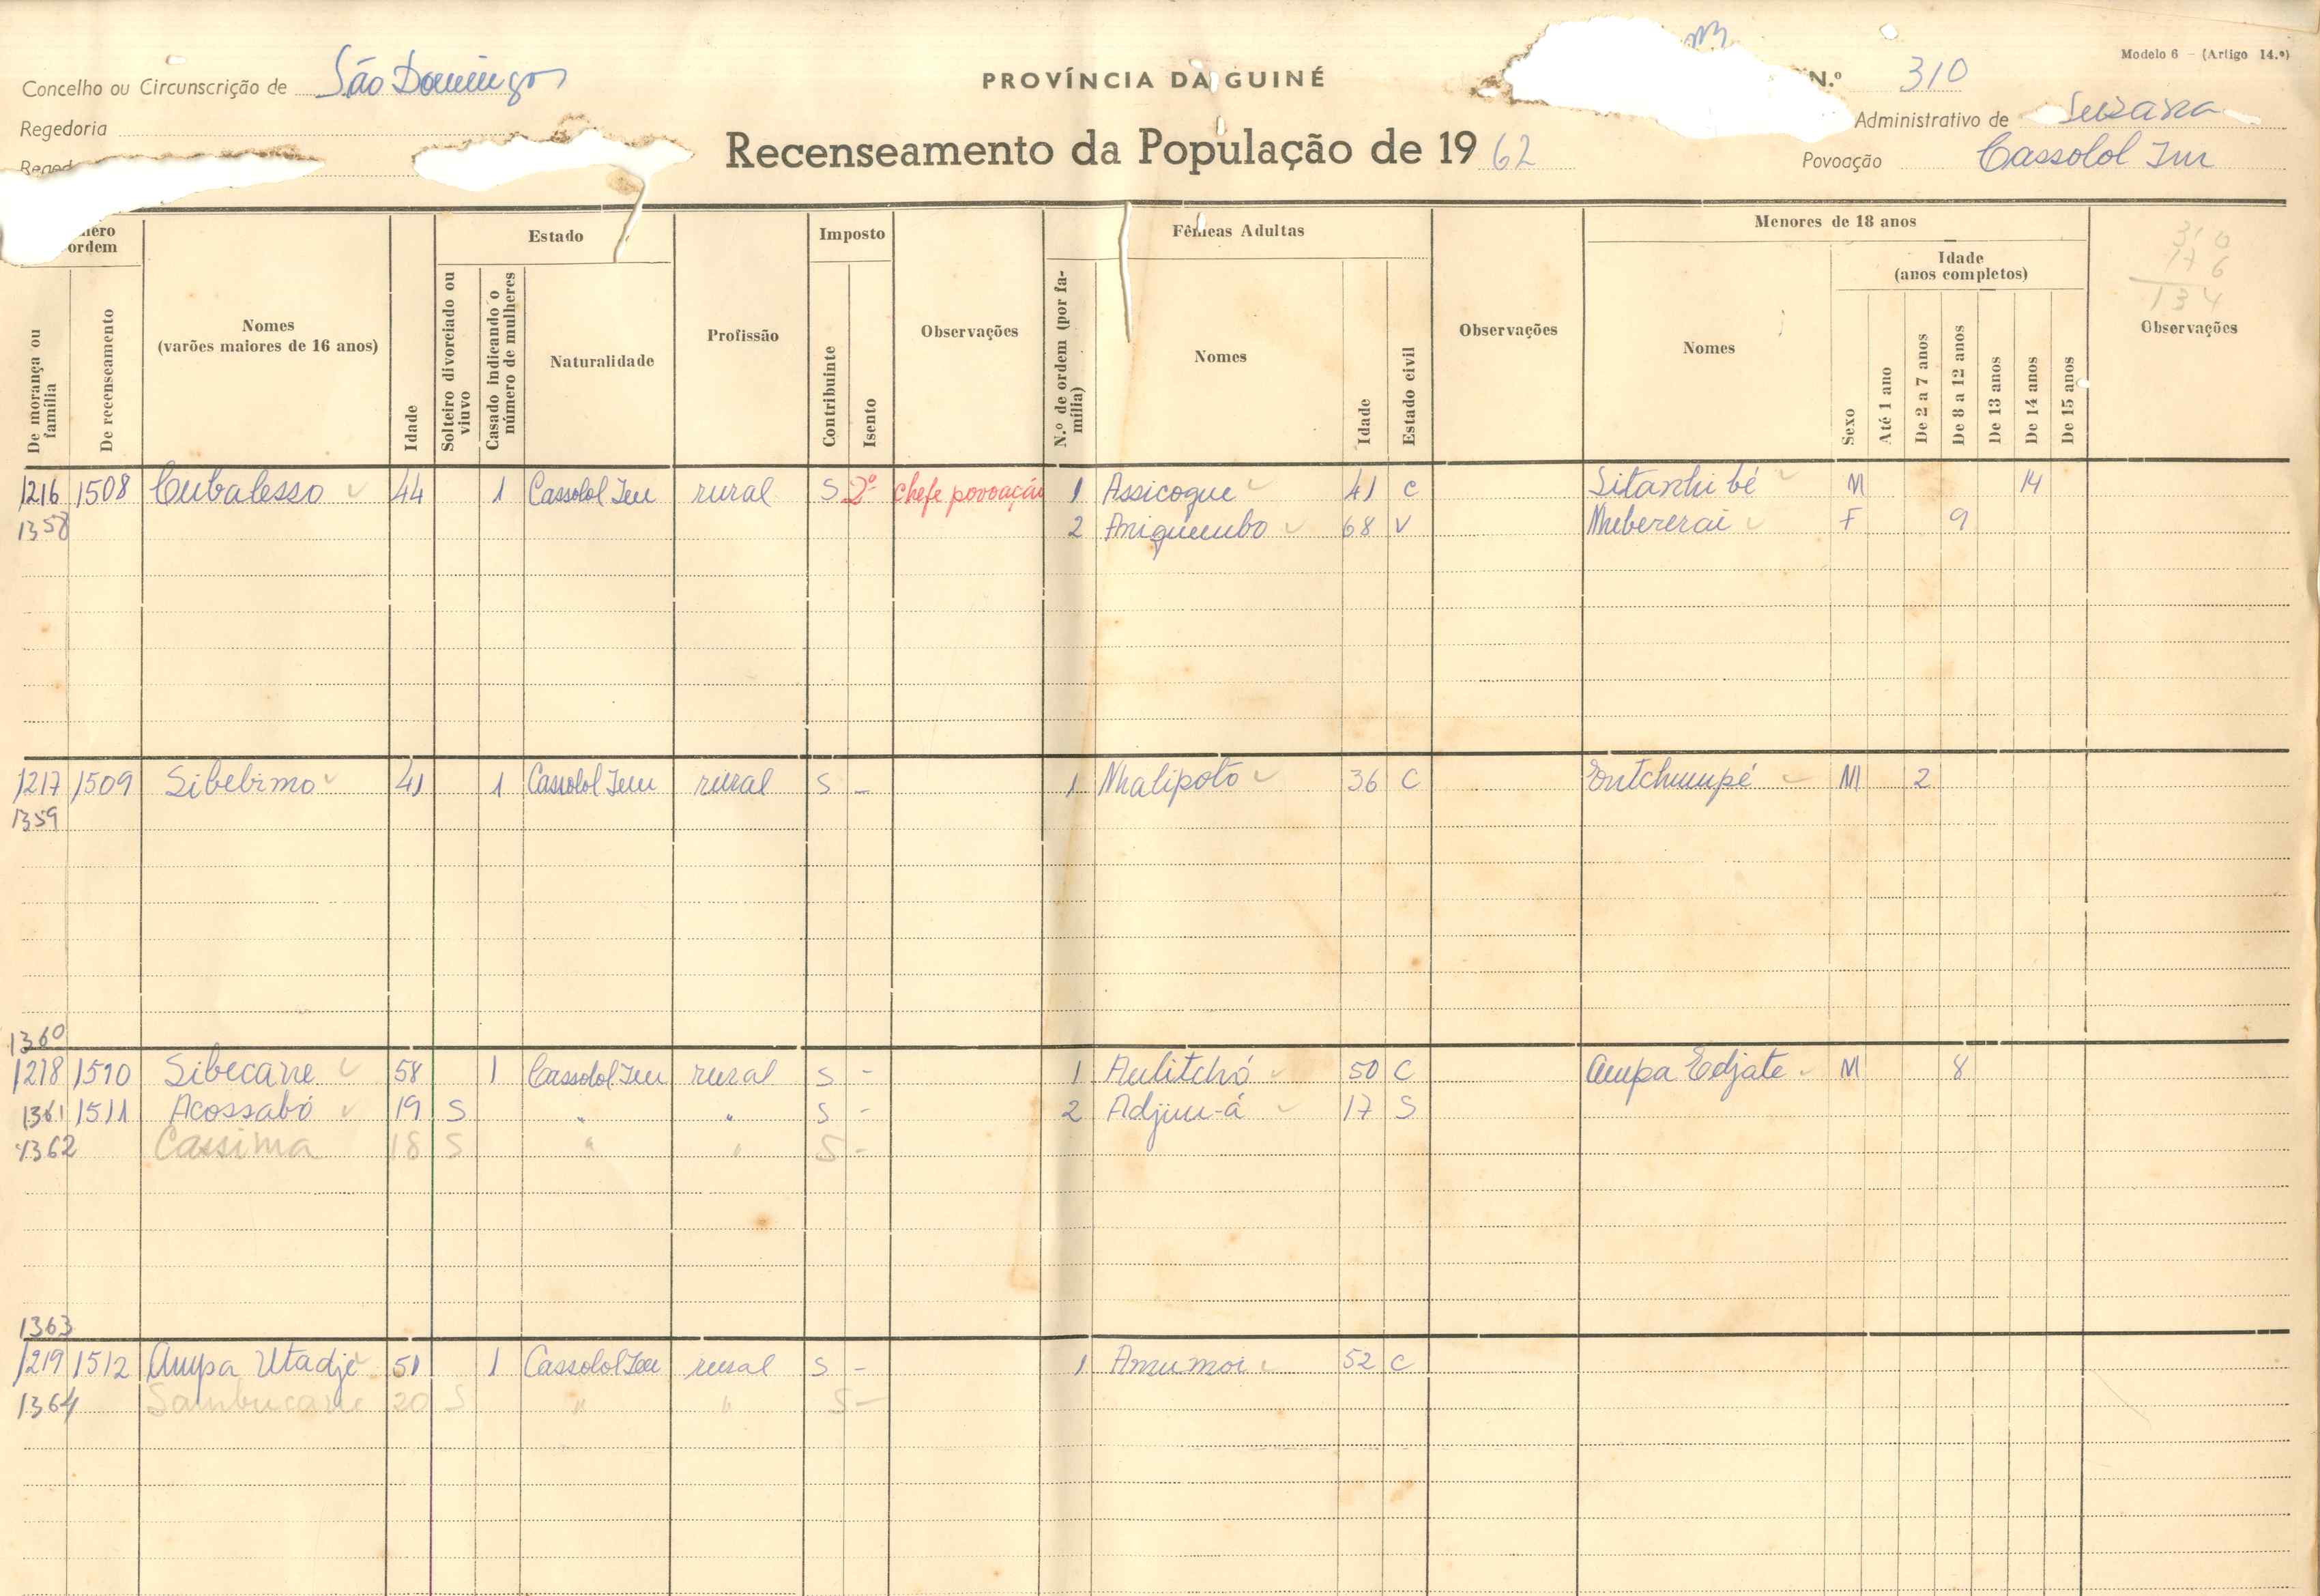 Modelo 6 — (Artigo 14.º)
Concelho ou Circunscrição de São Domingos
PROVÍNCIA DA GUINÉ
N.º 310
Regedoria
Administrativo de
Recenseamento da População de 1962
Povoação Cassolol
ordem
Estado
Imposto
Fêmeas Adultas
Menores de 18 anos
310
176
134
De morança ou família
De recenseamento
Nomes
(varões maiores de 16 anos)
Idade
Solteiro divorciado ou viuvo
Casado indicando o número de mulheres
Naturalidade
Profissão
Contribuinte
Isento
Observações
N.º de ordem (por família)
Nomes
Idade
Estado civil
Observações
Nomes
Sexo
Idade
(anos completos)
Até 1 ano
De 2 a 7 anos
De 8 a 12 anos
De 13 anos
De 14 anos
De 15 anos
Observações
1216 1508 Cubalesso 44 1 Cassolol rural S chefe povoação 1 Assicogue 41 C Sitanhibé M 14
1358 2 68 V F 9
1217 1509 Sibebimo 41 1 Cassolol rural S - 1 Nhalipoto 36 C M 2
1359
1360
1218 1510 Sibecane 58 1 Cassolol rural S - 1 Aulitchó 50 C Ampa Edjate M 8
1361 1511 Acossabó 19 S " " S - 2 17 S
1362 Cassima 18 S " " S -
1363
1219 1512 Ampa Utadje 51 1 Cassolol rural S - 1 Amumoi 52 C
1364 Sambucane 20 S " " S -